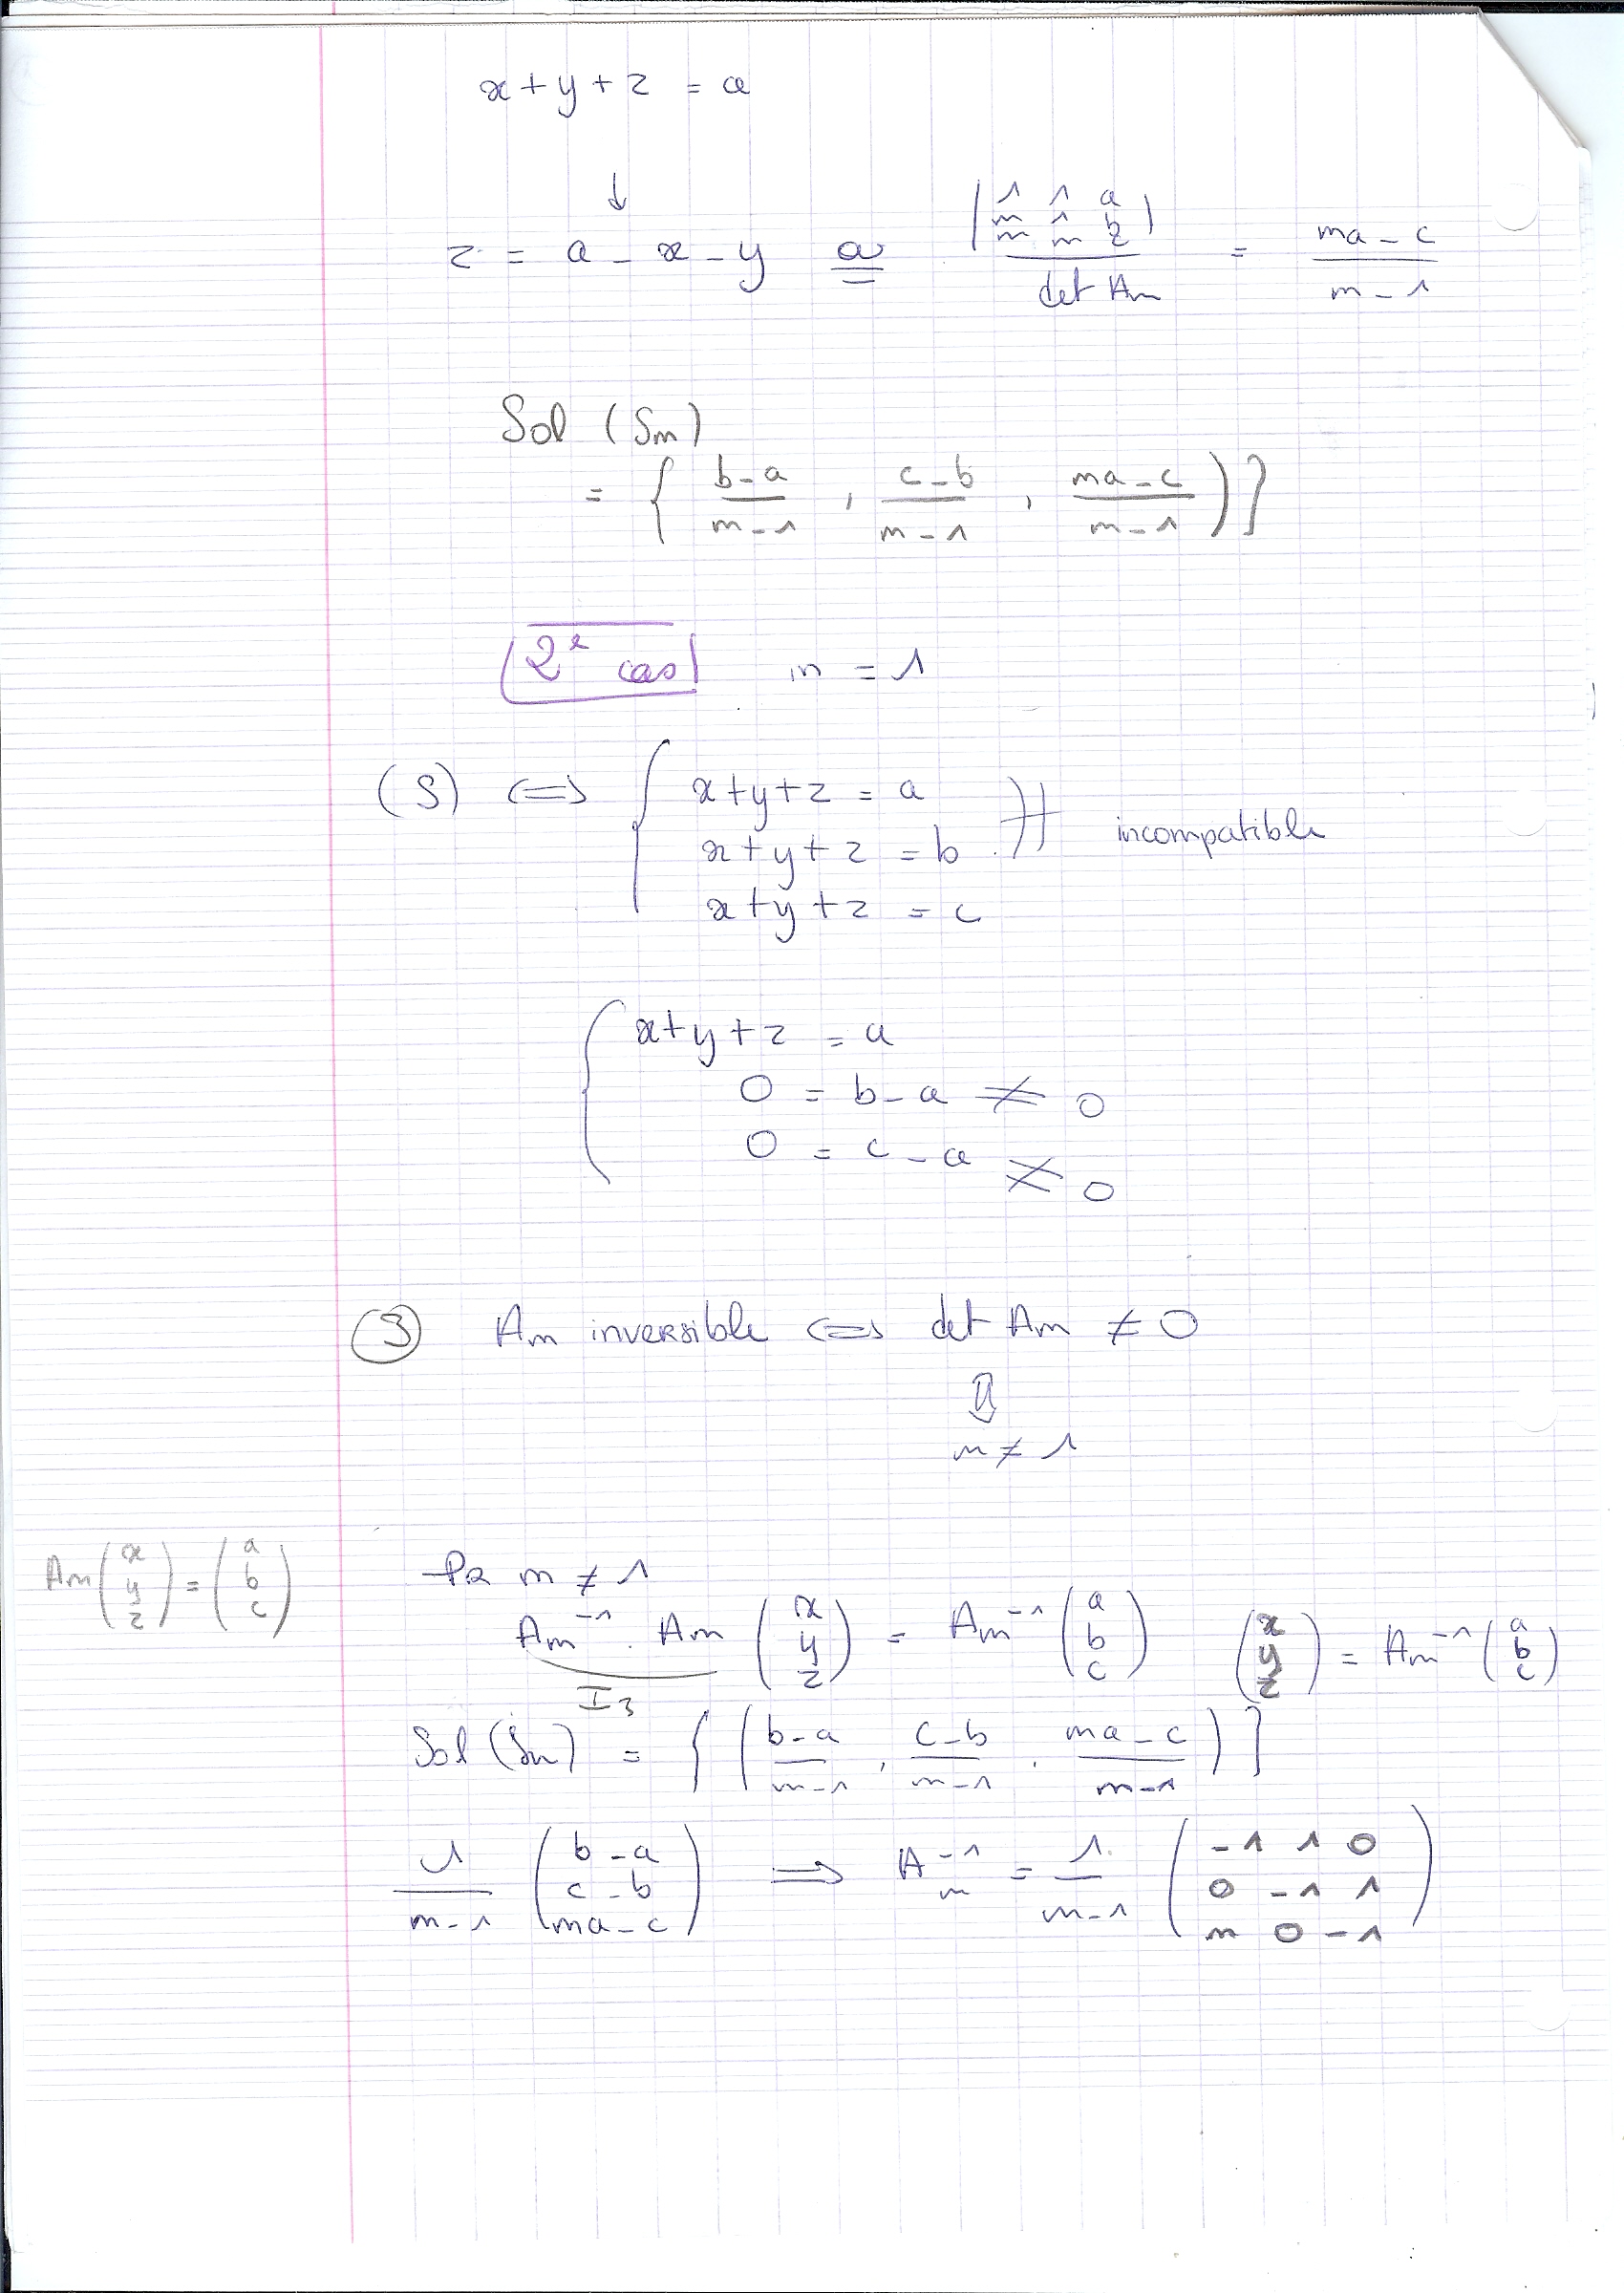 x + y + z = a
↓
z = a - x - y ou | 1 1 a / m 1 b / m m c | / det Am = (ma - c) / (m - 1)
Sol (Sm)
= { (b - a)/(m - 1) , (c - b)/(m - 1) , (ma - c)/(m - 1) ) }
2e cas m = 1
(S) ⇔ { x + y + z = a
x + y + z = b } incompatible
x + y + z = c
{ x + y + z = a
0 = b - a ≠ 0
0 = c - a ≠ 0
3 Am inversible ⇔ det Am ≠ 0
⇕
m ≠ 1
Am (x y z) = (a b c)
Pr m ≠ 1
Am⁻¹ . Am (x y z) = Am⁻¹ (a b c) (x y z) = Am⁻¹ (a b c)
I3
Sol (Sm) = { ( (b - a)/(m - 1) , (c - b)/(m - 1) , (ma - c)/(m - 1) ) }
1/(m - 1) ( b - a / c - b / ma - c ) ⇒ Am⁻¹ = 1/(m - 1) ( -1 1 0 / 0 -1 1 / m 0 -1 )